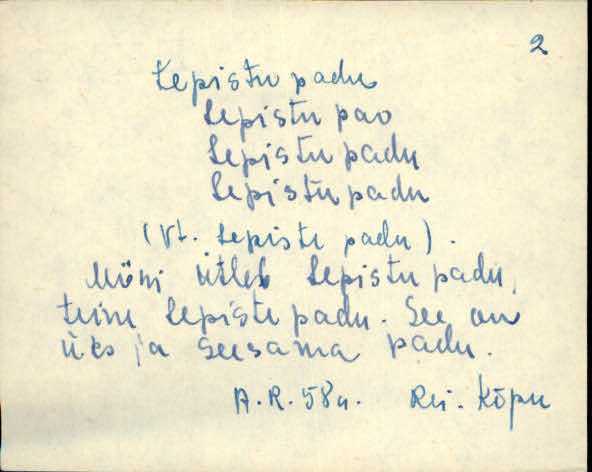 2
Lepistu padu
Lepistu pao
Lepistu padu
Lepistu padu
(Vt. Lepiste padu).
Mõni ütleb Lepistu padu,
teine Lepiste padu. See on
üks ja seesama padu.
A.R. 58a. Rei. Kõpu